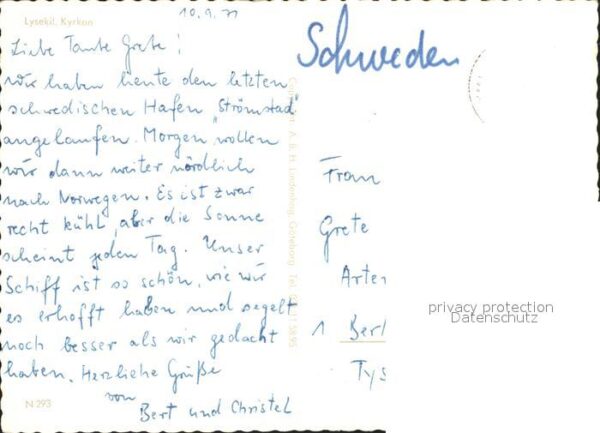 10.9.71
Lysekil, Kyrkan
Schweden
Liebe Tante Grete!
wir haben heute den letzten
schwedischen Hafen „Strömstad"
angelaufen. Morgen wollen
wir dann weiter nördlich
nach Norwegen. Es ist zwar
recht kühl, aber die Sonne
scheint jeden Tag. Unser
Schiff ist so schön, wie wir
es erhofft haben und segelt
noch besser als wir gedacht
haben. Herzliche Grüße
von
Bert und Christel
N 293
Frau
Grete
1
privacy protection
Datenschutz